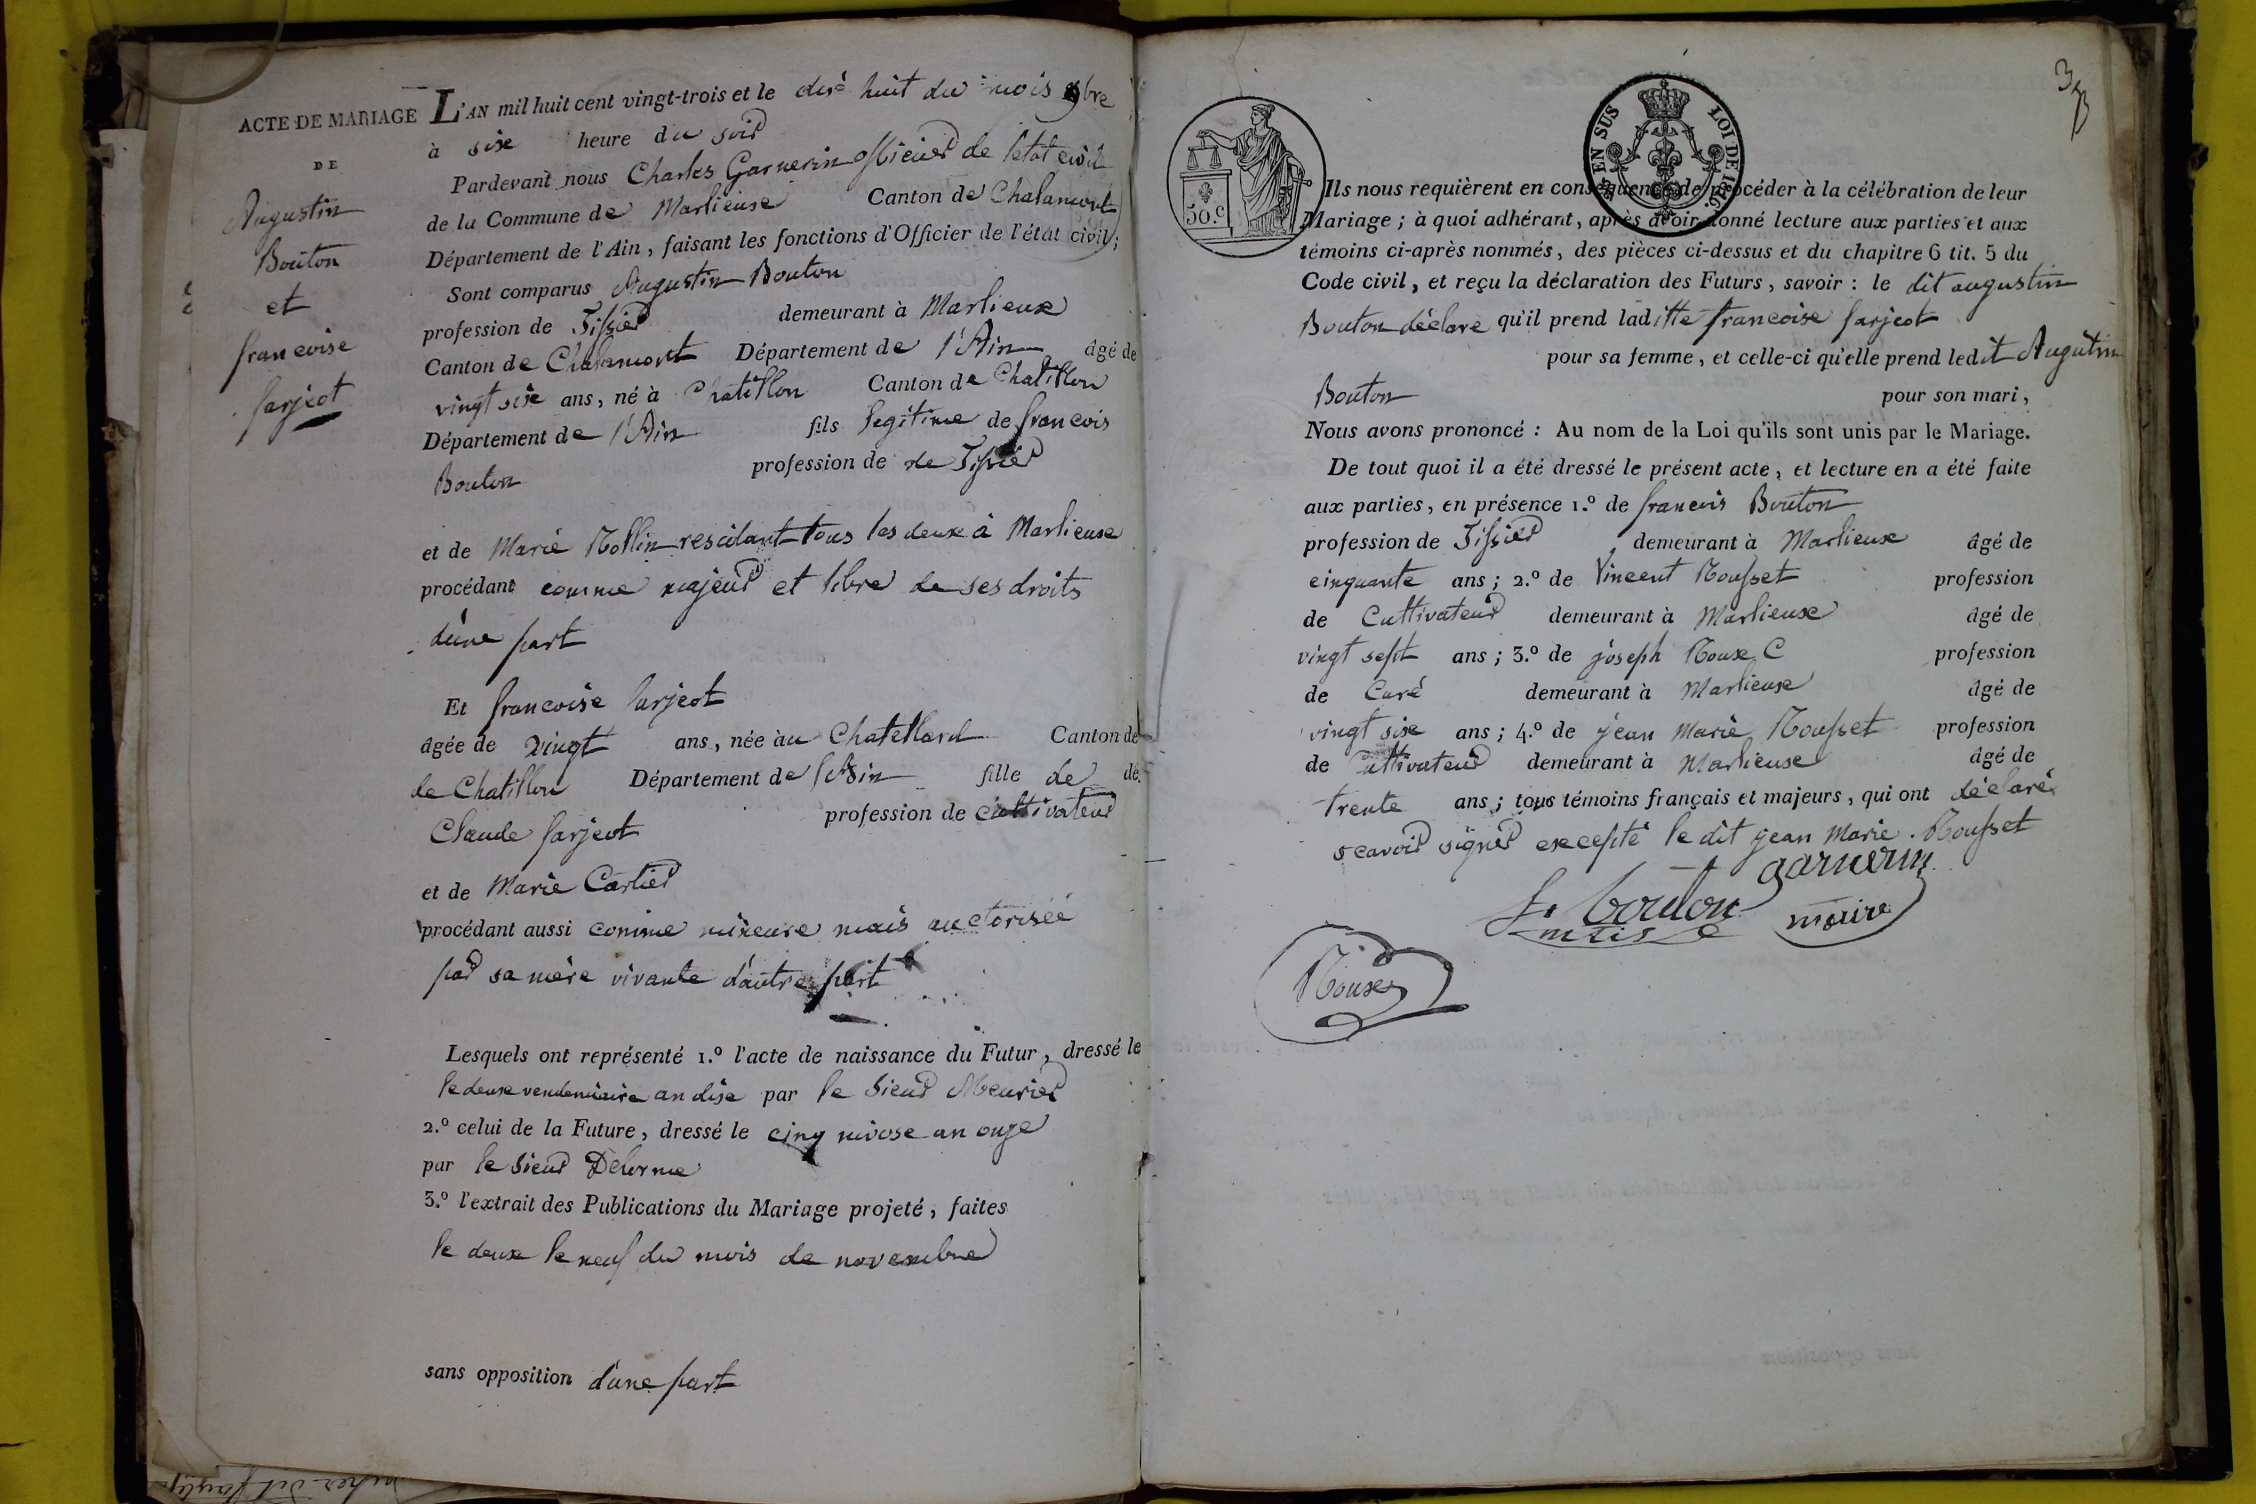 ACTE DE MARIAGE
DE
Augustin
Bouton
et
francoise
farjeot
L'AN mil huit cent vingt-trois et le dix huit du mois 9bre
à six heure du soir
Pardevant nous Charles Garnerin officier de letat civil
de la Commune de Marlieux Canton de Chalamont
Département de l'Ain, faisant les fonctions d'Officier de l'état civil;
Sont comparus Augustin Bouton
profession de Tissier demeurant à Marlieux
Canton de Chalamont Département de l'Ain âgé de
vingt six ans, né à Chatillon Canton de Chatillon
Département de l'Ain fils legitime de francois
Bouton profession de de Tissier
et de Marie Rollin residant tous les deux à Marlieux
procédant comme majeur et libre de ses droits
d'une part
Et francoise farjeot
âgée de vingt ans, née àu Chatellard Canton de
de Chatillon Département de l'Ain fille de de
Claude farjeot profession de cultivateur
et de Marie Cartier
procédant aussi comme mineure mais auctorisée
par sa mère vivante d'autre part
Lesquels ont représenté 1.º l'acte de naissance du Futur, dressé le
le deux vendemiaire an dix par le Sieur Meurier
2.º celui de la Future, dressé le cinq nivose an onze
par le Sieur Delorme
3.º l'extrait des Publications du Mariage projeté, faites
le deux le neuf du mois de novembre
sans opposition d'une part
3
50.c
EN SUS LOI DE 1816.
Ils nous requièrent en conséquence de procéder à la célébration de leur
Mariage; à quoi adhérant, après avoir donné lecture aux parties et aux
témoins ci-après nommés, des pièces ci-dessus et du chapitre 6 tit. 5 du
Code civil, et reçu la déclaration des Futurs, savoir: le dit augustin
Bouton déclare qu'il prend laditte francoise farjeot
pour sa femme, et celle-ci qu'elle prend ledit Augutin
Bouton pour son mari,
Nous avons prononcé: Au nom de la Loi qu'ils sont unis par le Mariage.
De tout quoi il a été dressé le présent acte, et lecture en a été faite
aux parties, en présence 1.º de francois Bouton
profession de Tissier demeurant à Marlieux âgé de
cinquante ans; 2.º de Vincent Rousset profession
de Cultivateur demeurant à Marlieux âgé de
vingt sept ans; 3.º de joseph Roux C profession
de Curé demeurant à Marlieux âgé de
vingt six ans; 4.º de jean Marie Rousset profession
de Cultivateur demeurant à Marlieux âgé de
trente ans; tous témoins français et majeurs, qui ont déclaré
scavoir signer excepté le dit jean Marie Rousset
garnerin
f. bouton
maire
Roux